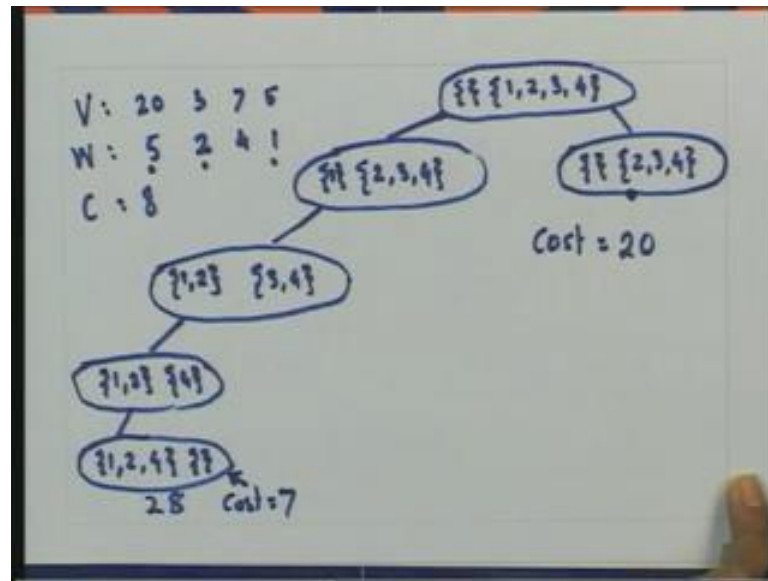 V: 20 3 7 5
W: 5 2 4 1
C: 8
{} {1,2,3,4}
{1} {2,3,4}
{} {2,3,4}
Cost = 20
{1,2} {3,4}
{1,2} {4}
{1,2,4} {}
28 Cost=7